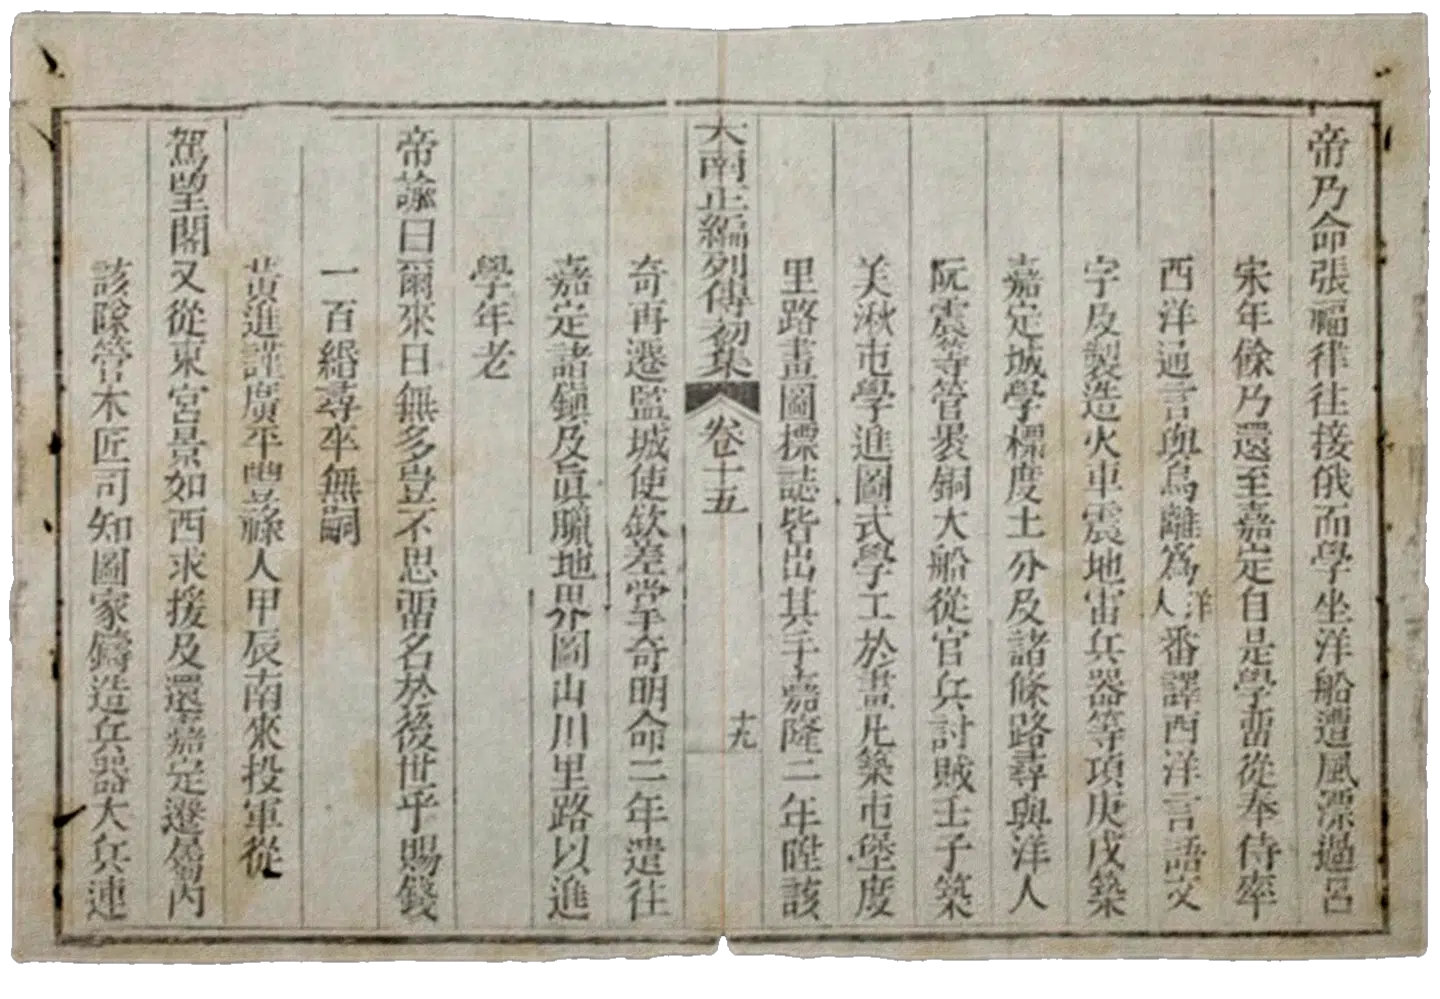 帝乃命張福律往接俄而學坐洋船遭風漂過呂
宋年餘乃還至嘉定自是學嘗從奉侍率
西洋通言與烏離爲人洋番譯西洋言語文
字及製造火車震地雷兵器等項庚戌築
嘉定城學標度土分及諸條路尋與洋人
阮震等管褁銅大船從官兵討賊壬子築
美湫屯學進圖式學工於畫凡築屯堡度
里路畫圖標誌皆出其手嘉隆二年陞該
大南正編列傳初集 卷十五 十九
奇再遷監城使欽差掌奇明命二年遣往
嘉定諸鎭及眞臘地界圖山川里路以進
學年老
帝諭曰爾來日無多豈不思畱名於後世乎賜錢
一百緡尋卒無嗣
黃進謹廣平豐祿人甲辰南來投軍從
駕望閣又從東宮景如西求援及還嘉定遷屬內
該隊管木匠司知圖家鑄造兵器大兵連